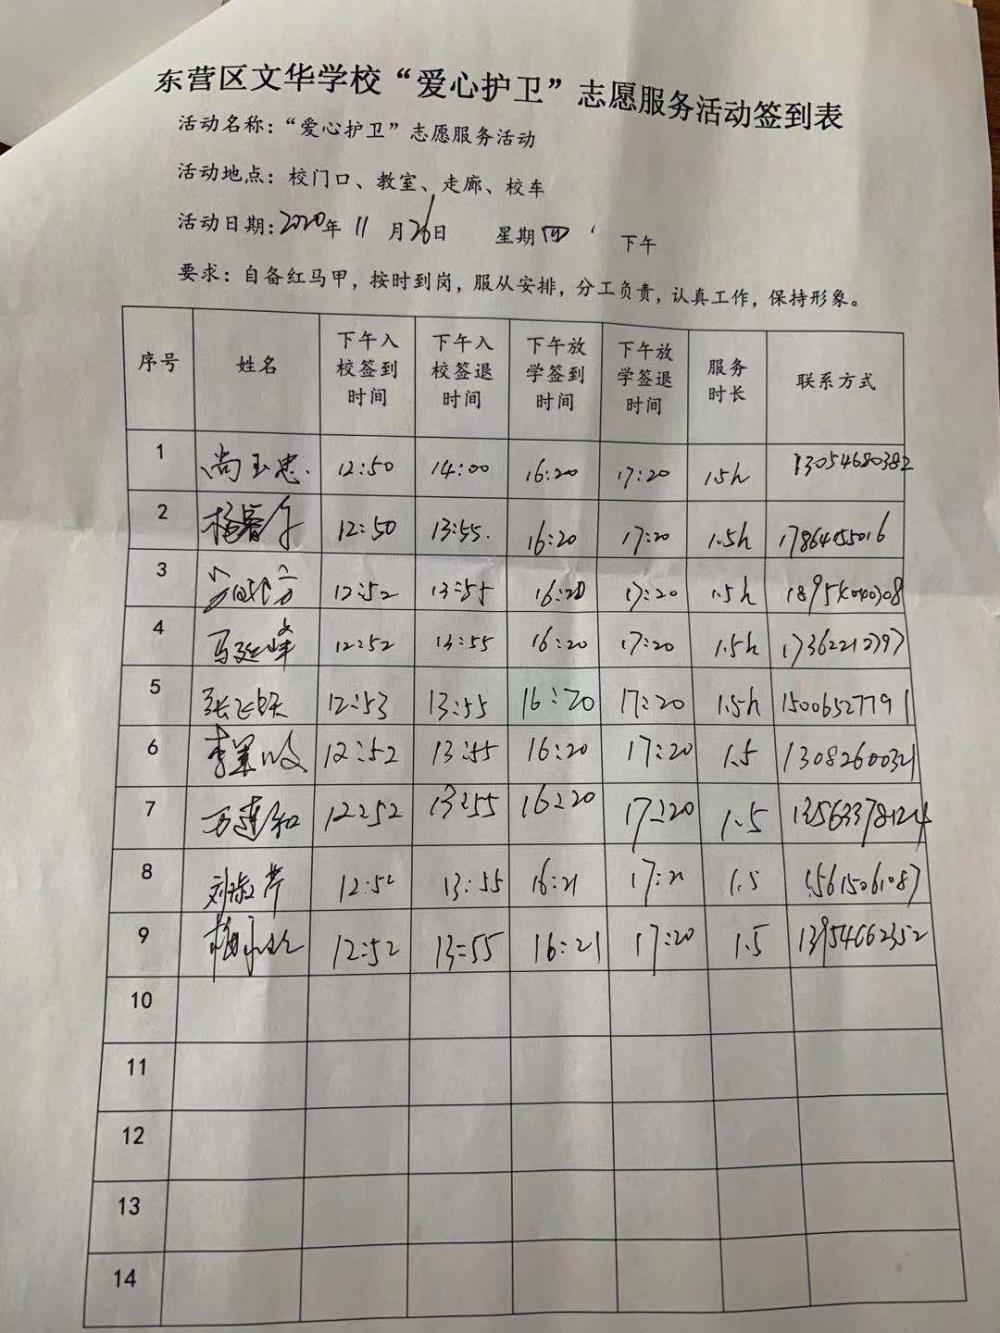 东营区文华学校“爱心护卫”志愿服务活动签到表
活动名称：“爱心护卫”志愿服务活动
活动地点：校门口、教室、走廊、校车
活动日期：2020年 11 月26日 星期四 下午
要求：自备红马甲，按时到岗，服从安排，分工负责，认真工作，保持形象。
序号 姓名 下午入校签到时间 下午入校签退时间 下午放学签到时间 下午放学签退时间 服务时长 联系方式
1 尚玉忠 12:50 14:00 16:20 17:20 1.5h 13054680382
2 12:50 13:55 16:20 17:20 1.5h 17864055016
3 12:52 13:55 16:20 17:20 1.5h
4 马延峰 12:52 13:55 16:20 17:20 1.5h 17362212797
5 张飞跃 12:53 13:55 16:20 17:20 1.5h 15006527791
6 12:52 13:55 16:20 17:20 1.5 13082600321
7 万莲和 12:52 13:55 16:20 17:20 1.5 13563378124
8 12:52 13:55 16:21 17:21 1.5 15615061087
9 12:52 13:55 16:21 17:20 1.5 13954662352
10
11
12
13
14